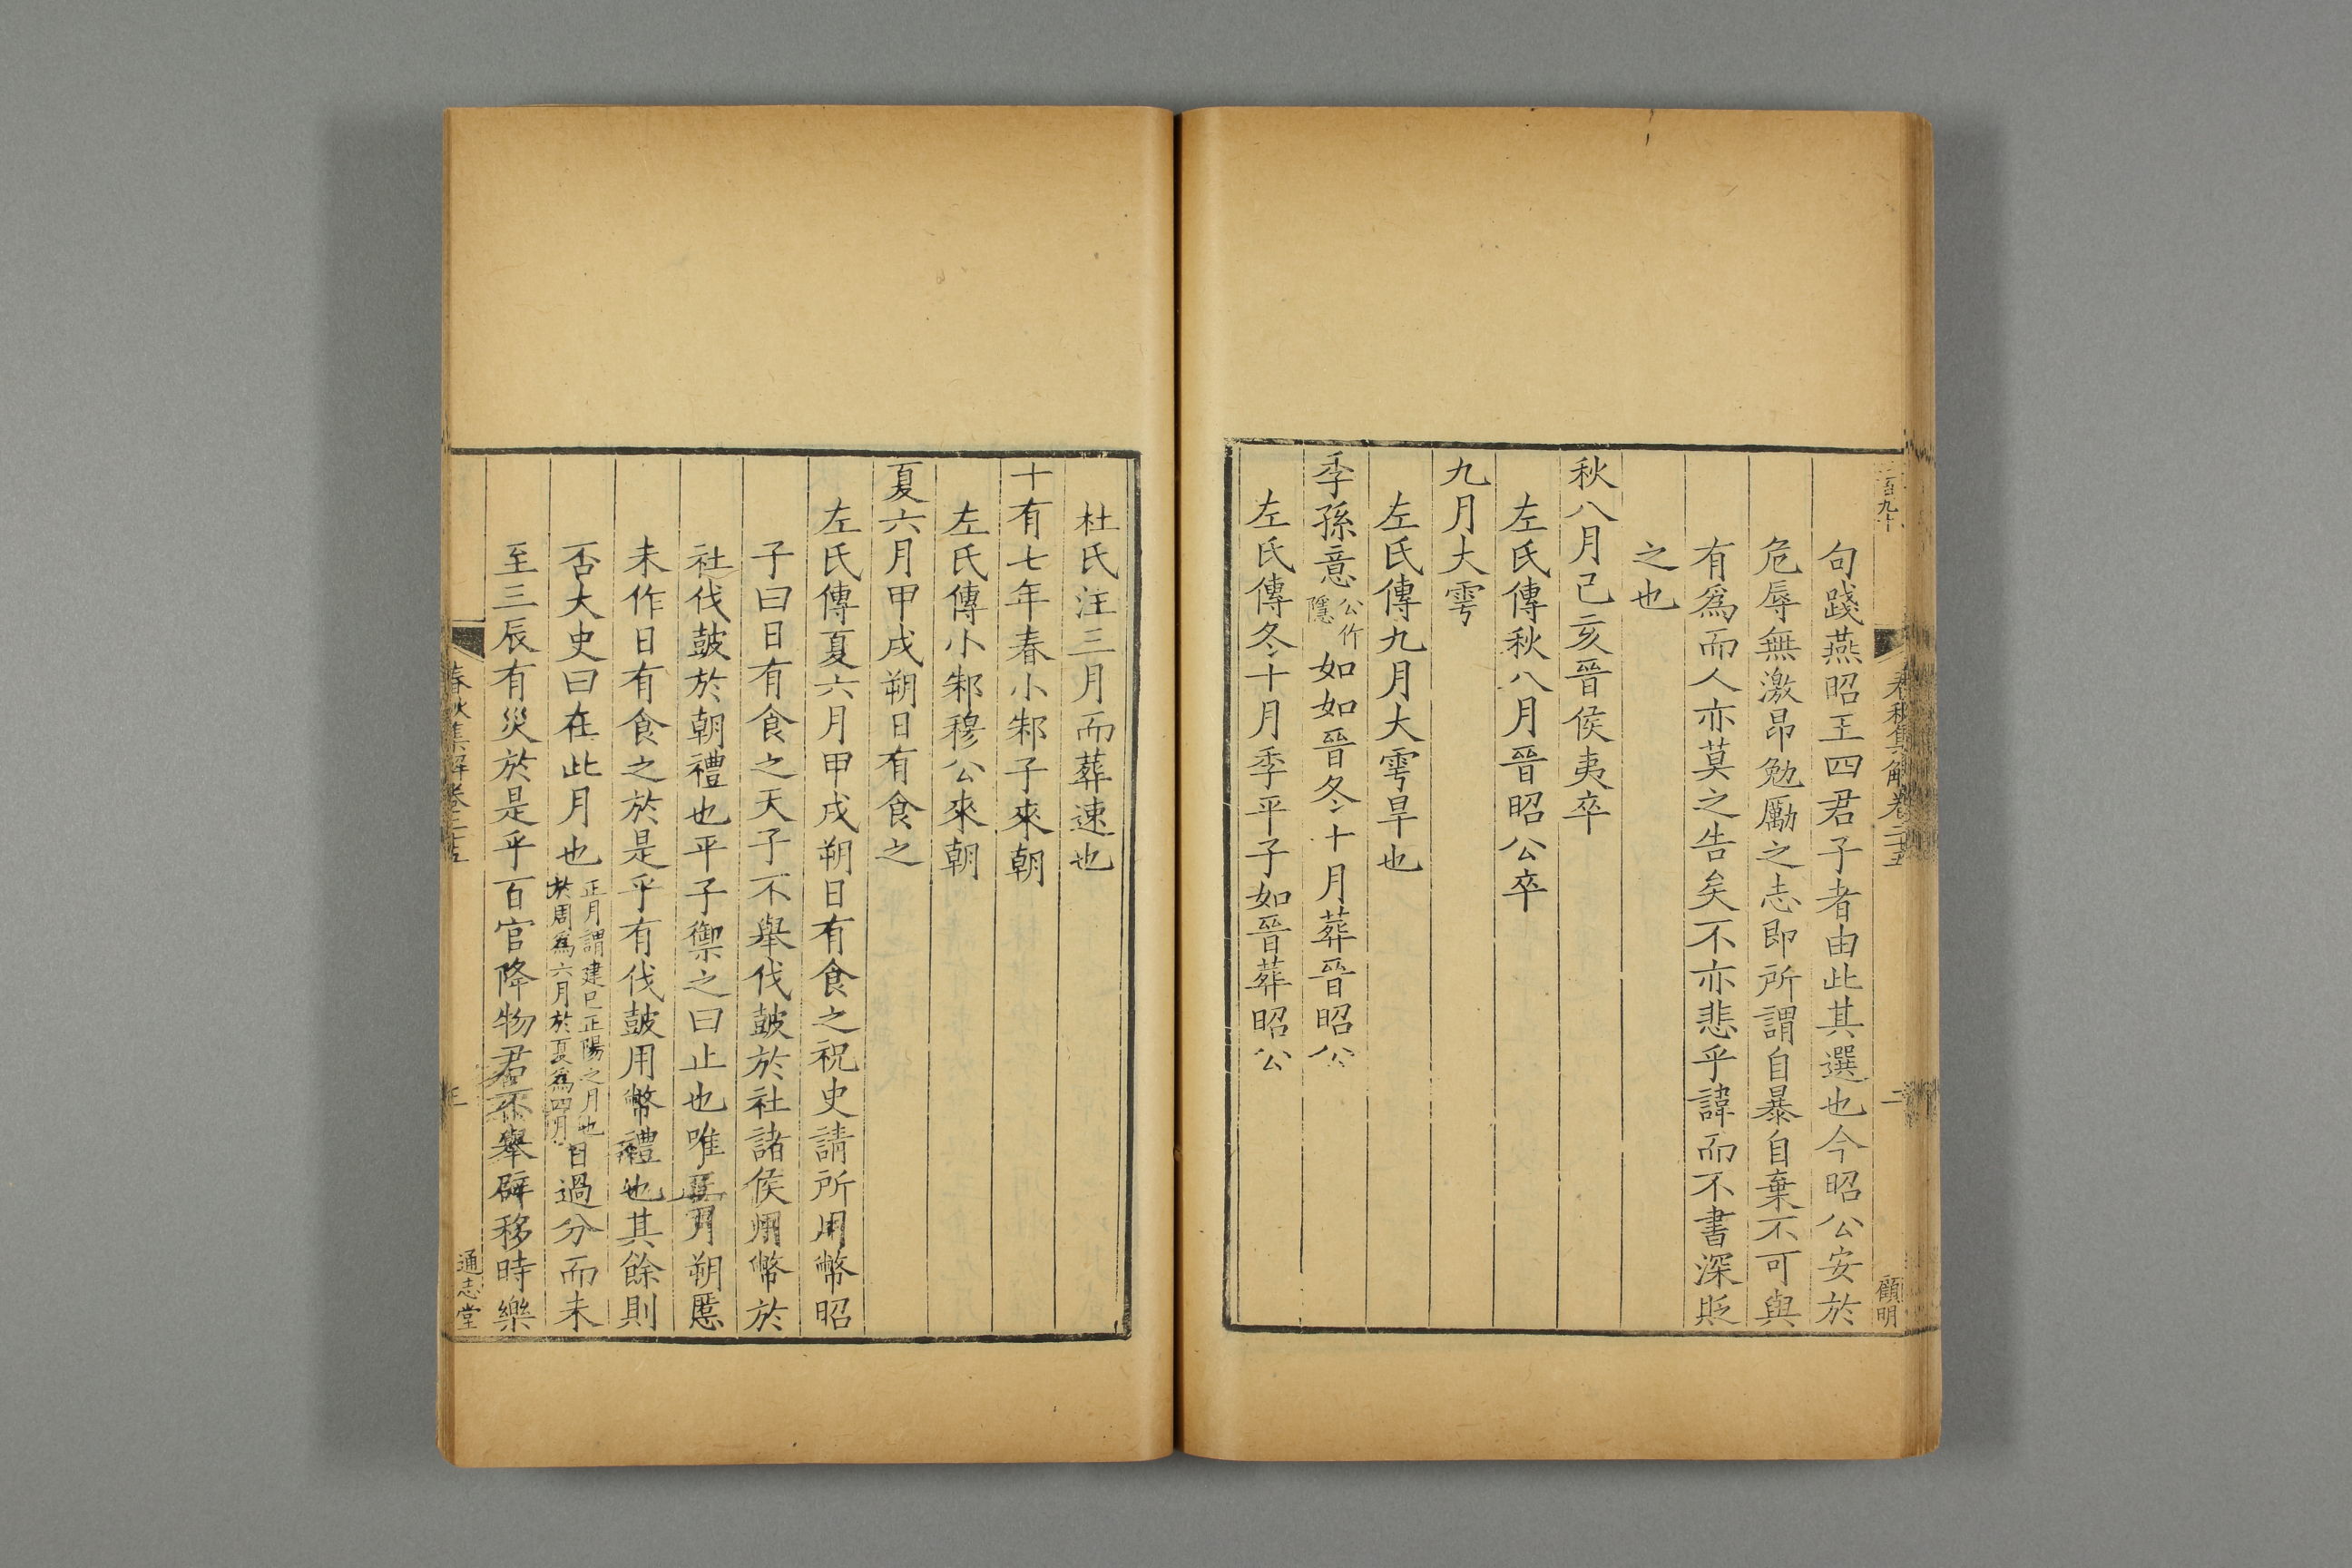 句踐燕昭王四君子者由此其選也今昭公安於
危辱無激昂勉勵之志即所謂自暴自棄不可與
有爲而人亦莫之告矣不亦悲乎諱而不書深貶
之也
秋八月己亥晉侯夷卒
左氏傳秋八月晉昭公卒
九月大雩
左氏傳九月大雩旱也
季孫意公作隱如如晉冬十月葬晉昭公
左氏傳冬十月季平子如晉葬昭公
杜氏注三月而葬速也
十有七年春小邾子來朝
左氏傳小邾穆公來朝
夏六月甲戌朔日有食之
左氏傳夏六月甲戌朔日有食之祝史請所用幣昭
子曰日有食之天子不舉伐鼓於社諸侯用幣於
社伐鼓於朝禮也平子禦之曰止也唯正月朔慝
未作日有食之於是乎有伐鼓用幣禮也其餘則
否大史曰在此月也正月謂建巳正陽之月也於周爲六月於夏爲四月日過分而未
至三辰有災於是乎百官降物君不舉辟移時樂
春秋集解卷二十五
二
顧明
春秋集解卷二十五
三
通志堂